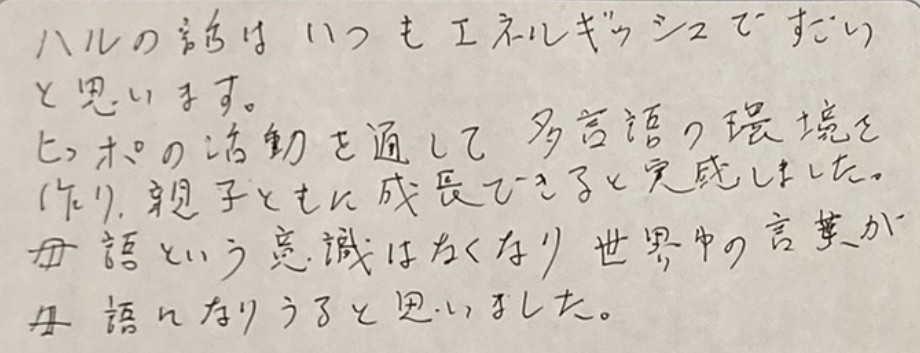 ハルの話は いつも エネルギッシュで すごい
と思います。
ヒッポの活動を通して 多言語の環境を
作り、親子ともに成長できると実感しました。
母語という意識はなくなり 世界中の言葉が
母語になりうると思いました。